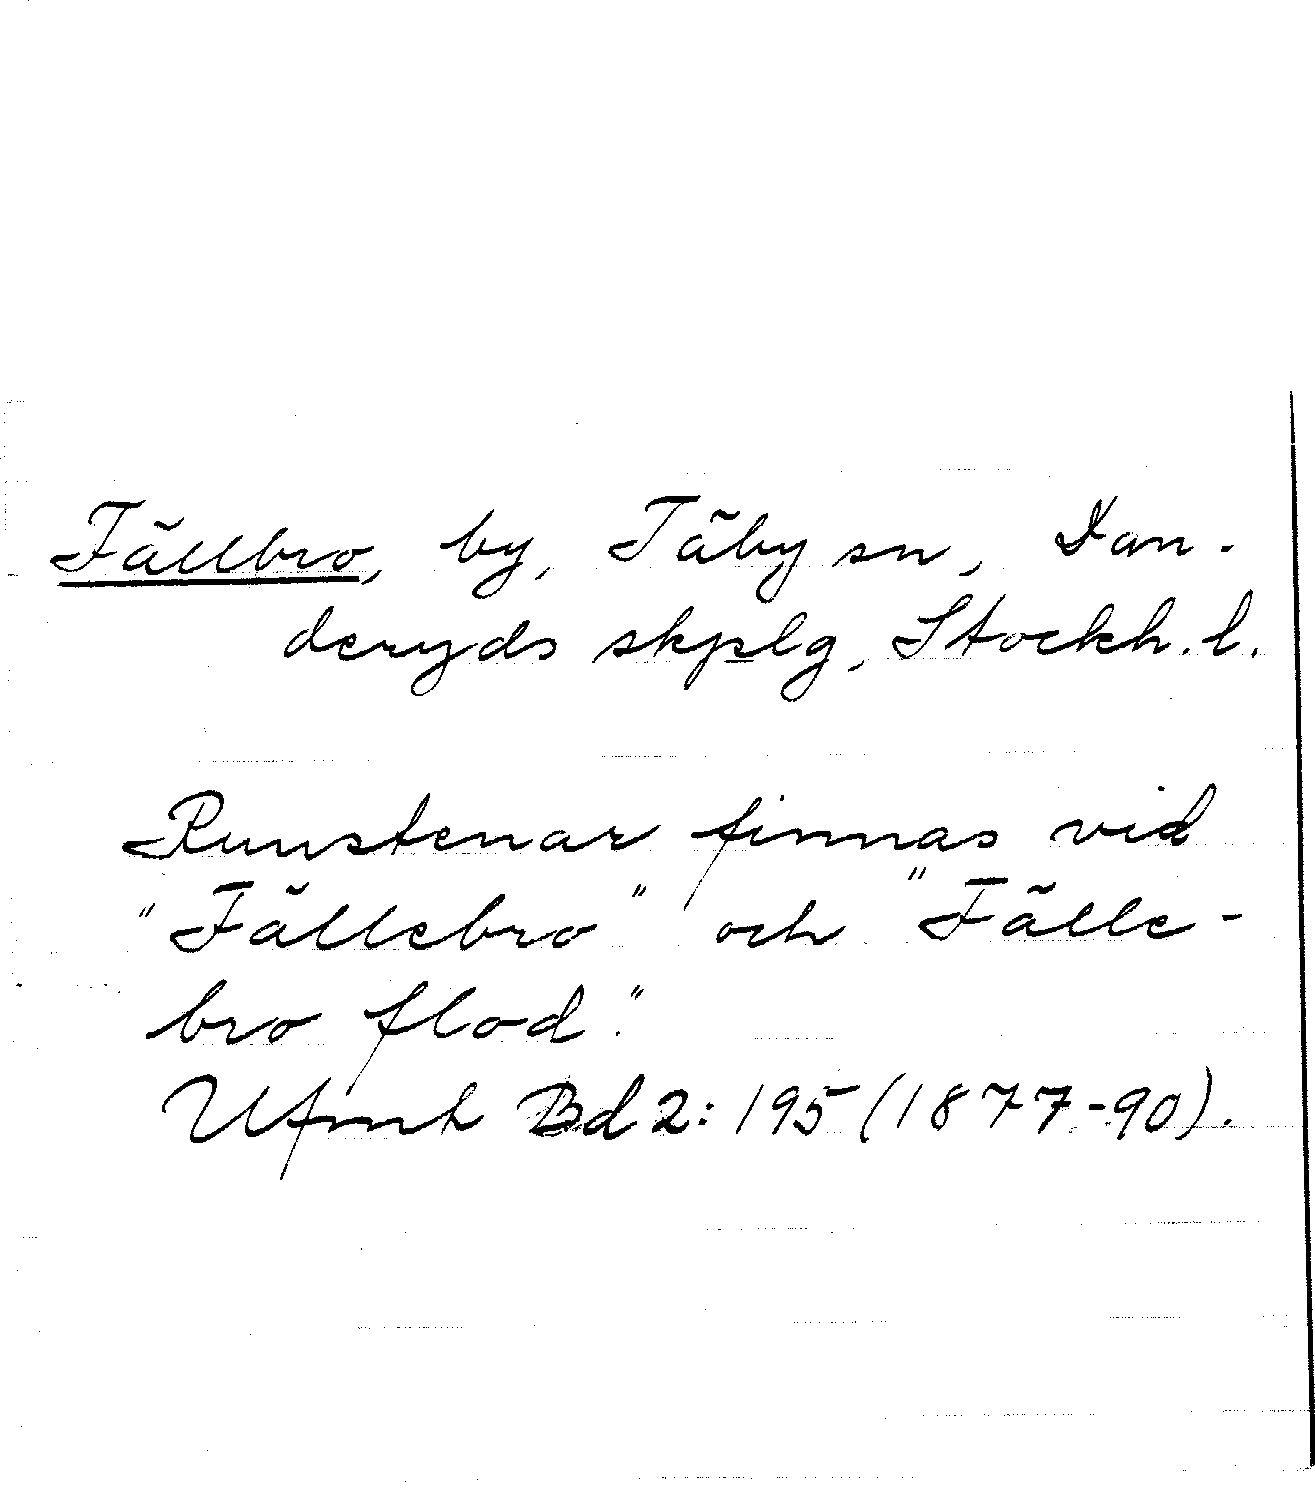 Fällbro, by, Täby sn, Dan-
deryds skplg, Stockh. l.
Runstenar finnas vid
"Fällebro" och "Fälle-
bro flod."
Ufmh Bd 2: 195 (1877-90).